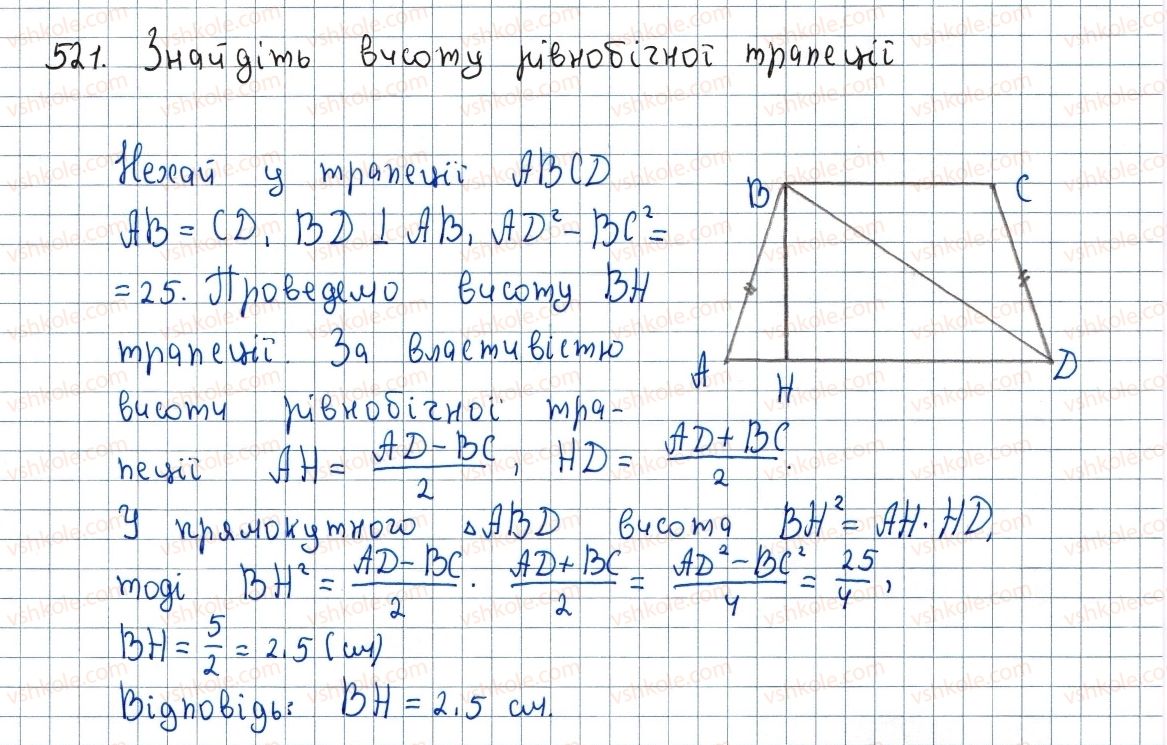 521. Знайдіть висоту рівнобічної трапеції
Нехай у трапеції ABCD
AB = CD, BD ⊥ AB, AD² - BC² =
= 25. Проведемо висоту BH
трапеції. За властивістю
висоти рівнобічної тра-
пеції AH = (AD - BC)/2, HD = (AD + BC)/2.
У прямокутного ΔABD висота BH² = AH · HD,
тоді BH² = (AD - BC)/2 · (AD + BC)/2 = (AD² - BC²)/4 = 25/4,
BH = 5/2 = 2.5 (см)
Відповідь: BH = 2.5 см.
B C
A H D
vshkole.com